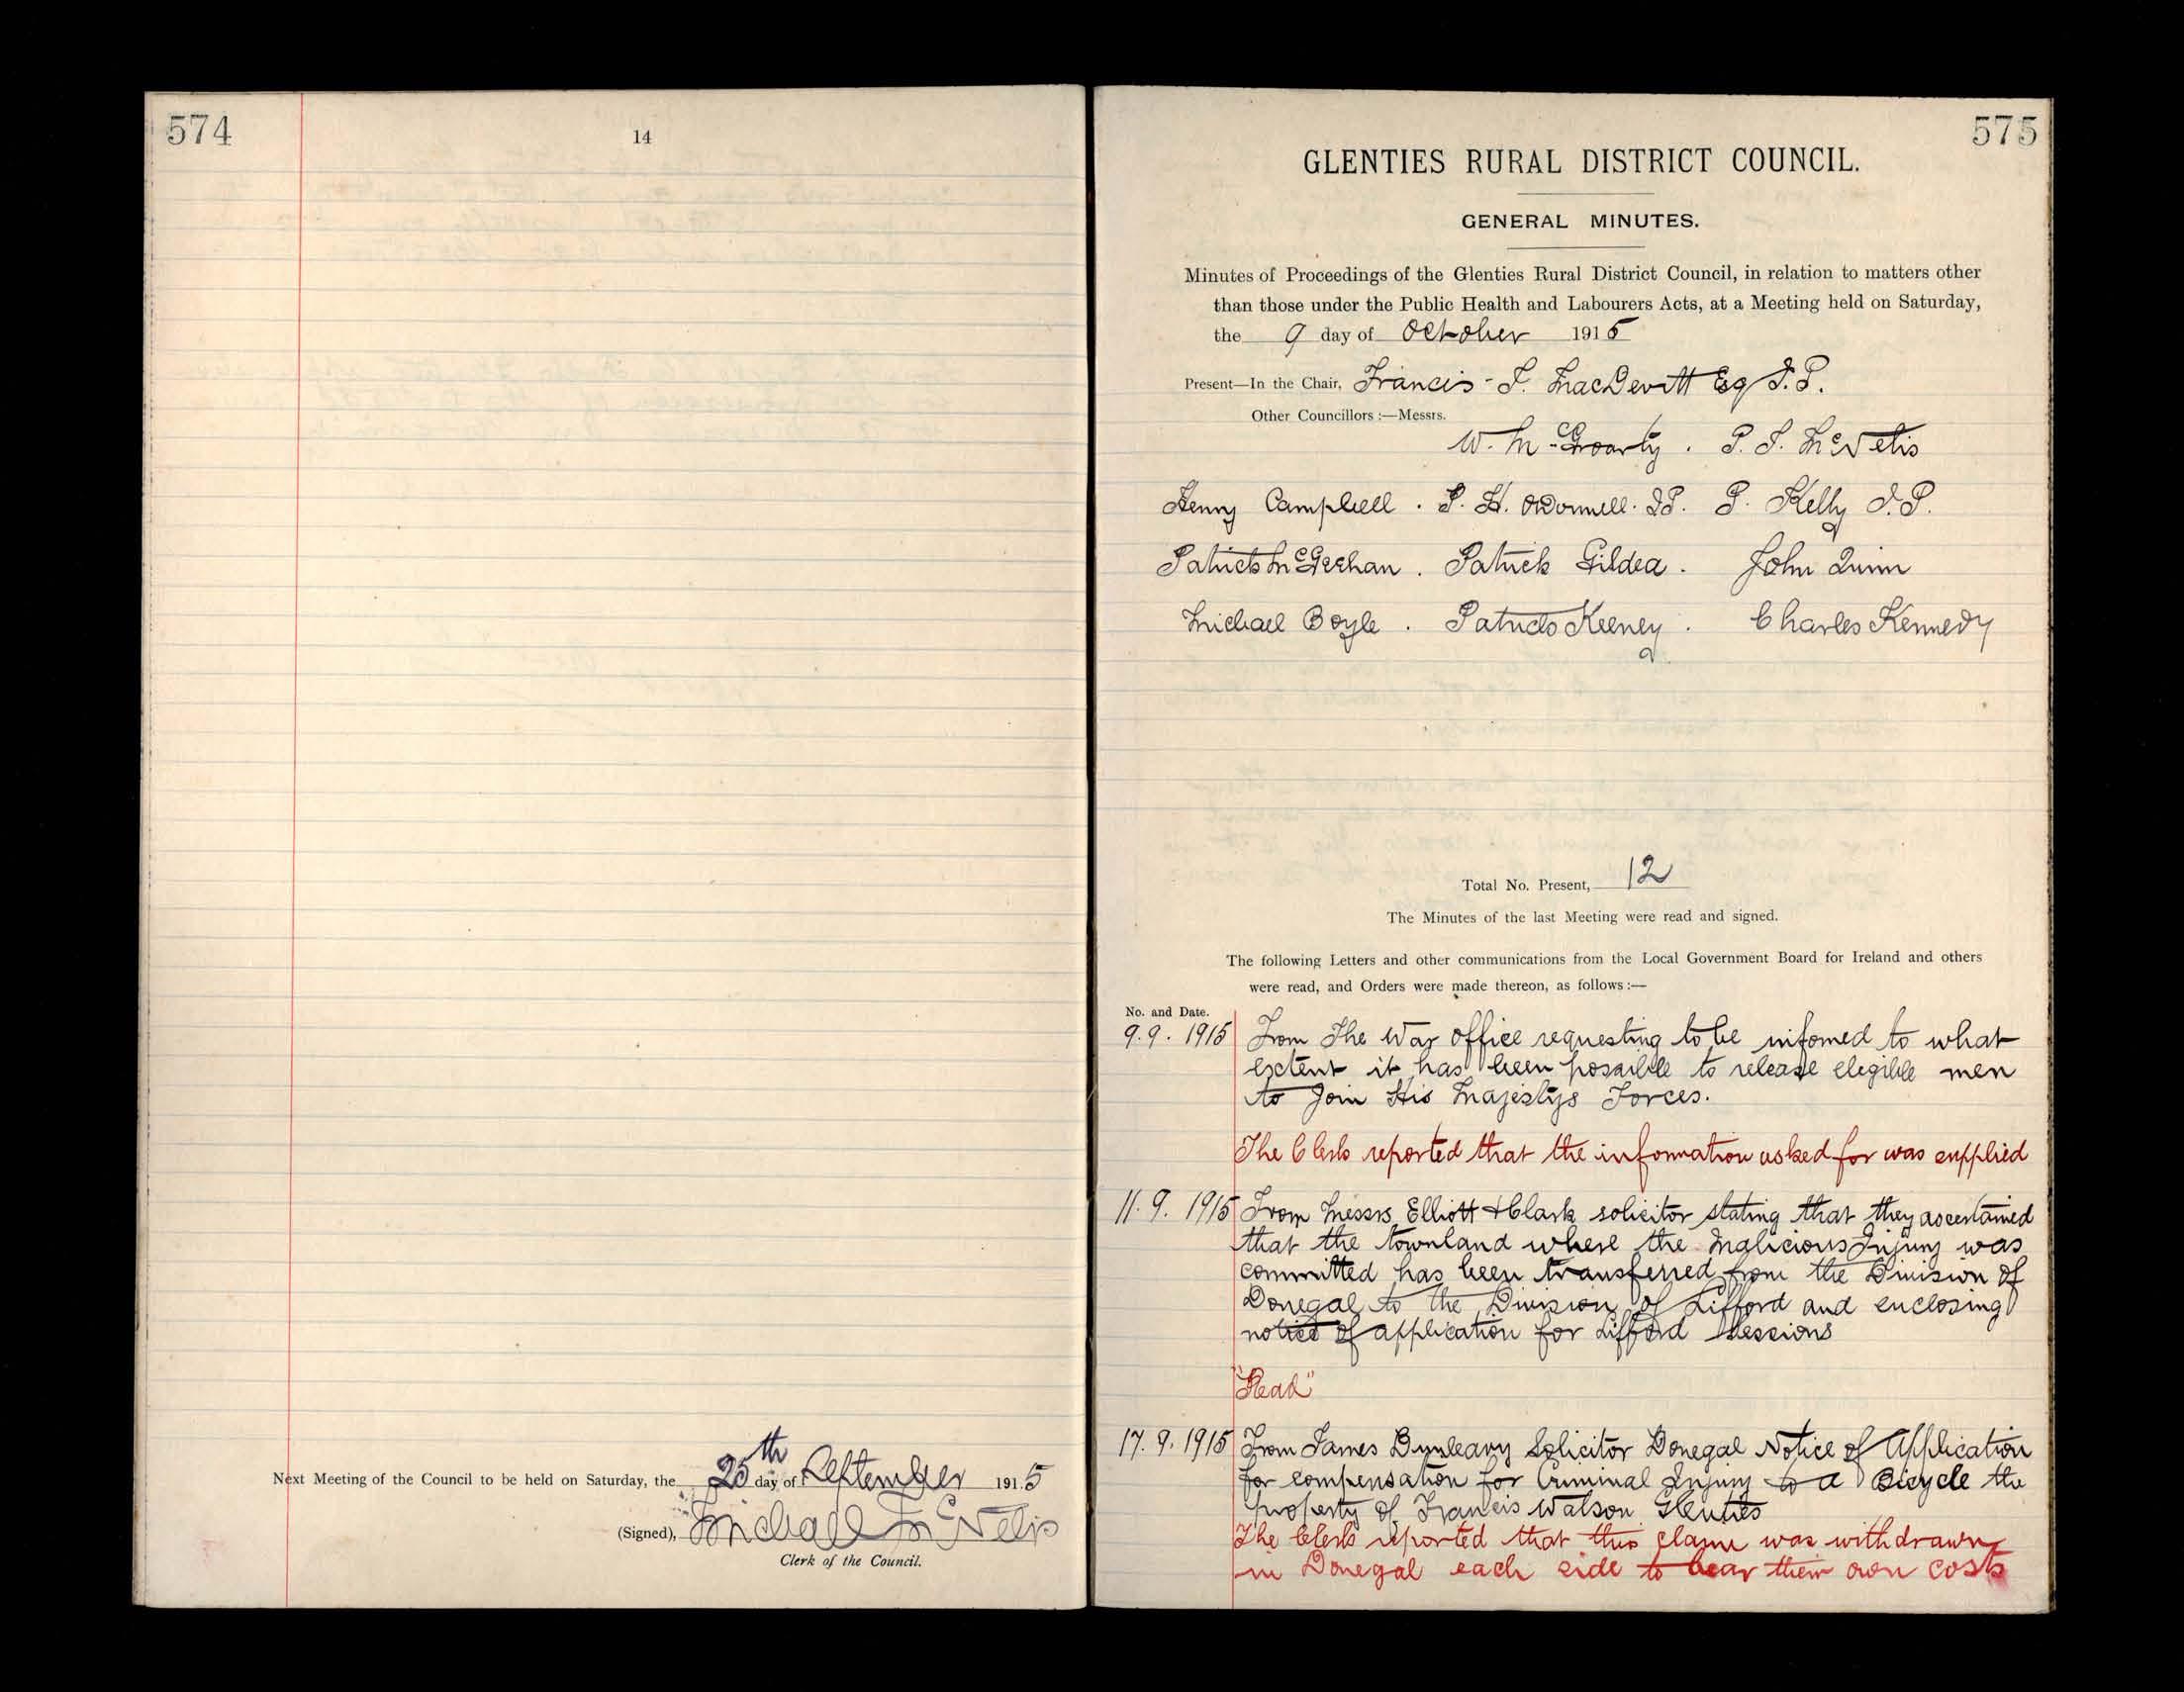 574
14
Next Meeting of the Council to be held on Saturday, the 25th day of September 1915
(Signed), Michael McNelis
Clerk of the Council.
575
GLENTIES RURAL DISTRICT COUNCIL.
GENERAL MINUTES.
Minutes of Proceedings of the Glenties Rural District Council, in relation to matters other
than those under the Public Health and Labourers Acts, at a Meeting held on Saturday,
the 9 day of October 1915
Present—In the Chair, Francis J. MacDevitt Esq J.P.
Other Councillors :—Messrs.
W. McGroarty . P. J. McNelis
Henry Campbell . P. H. ODonnell. JP. P. Kelly J.P.
Patrick McGeehan . Patrick Gildea . John Quinn
Michael Boyle . Patrick Keeney . Charles Kennedy
Total No. Present, 12
The Minutes of the last Meeting were read and signed.
The following Letters and other communications from the Local Government Board for Ireland and others
were read, and Orders were made thereon, as follows :—
No. and Date.
9.9.1915 From The War Office requesting to be infomed to what
extent it has been possible to release elegible men
to Join His Majestys Forces.
The Clerk reported that the information asked for was supplied
11.9.1915 From Messrs Elliott & Clark solicitor stating that they ascertained
that the townland where the Malicious Injury was
committed has been transferred from the Division of
Donegal to the Division of Lifford and enclosing
notice of application for Lifford Sessions
"Read"
17.9.1915 From James Dunleavy Solicitor Donegal Notice of Application
for compensation for Criminal Injury to a Bicycle the
property of Francis Watson Glenties
The Clerk reported that this claim was withdrawn
in Donegal each side to bear their own costs